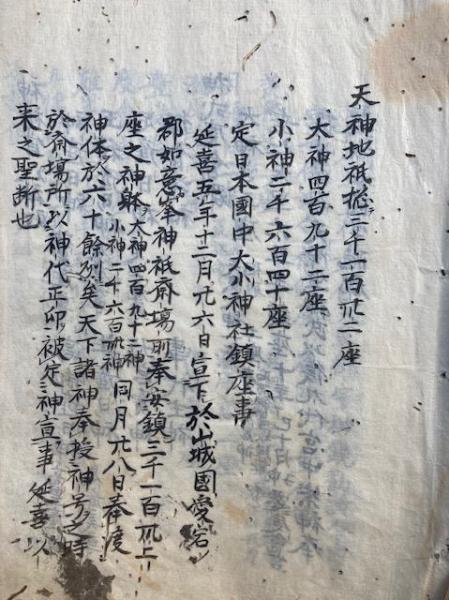 天神地祇惣三千一百卅二座
大神四百九十二座
小神二千六百四十座
定日本國中大小神社鎮座事
延喜五年十二月廾六日宣下於山城國愛宕
郡如意峯神祇齋場所奉安鎮三千一百卅二
座之神躰大神四百九十二神
小神二千六百四十神同月廾八日奉度
神体於六十餘列矣天下諸神奉授神号之時
於齋場所以神代正印被定神宣事延喜以
来之聖断也